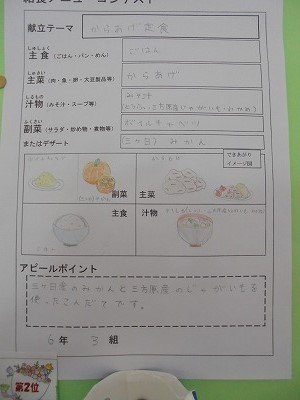 給食メニューコンテスト
献立テーマ からあげ定食
しゅしょく
主食(ごはん・パン・めん) ごはん
しゅさい
主菜(肉・魚・卵・大豆製品等) からあげ
しるもの
汁物(みそ汁・スープ等) みそ汁
ふくさい
副菜(サラダ・炒め物・煮物等) ボイルキャベツ
またはデザート 三ケ日みかん
できあがり
イメージ図
副菜 主菜
主食 汁物
ごはん
アピールポイント
三ケ日産のみかんと三方原産のじゃがいもを
使ったこんだてです。
6年 3組
第2位